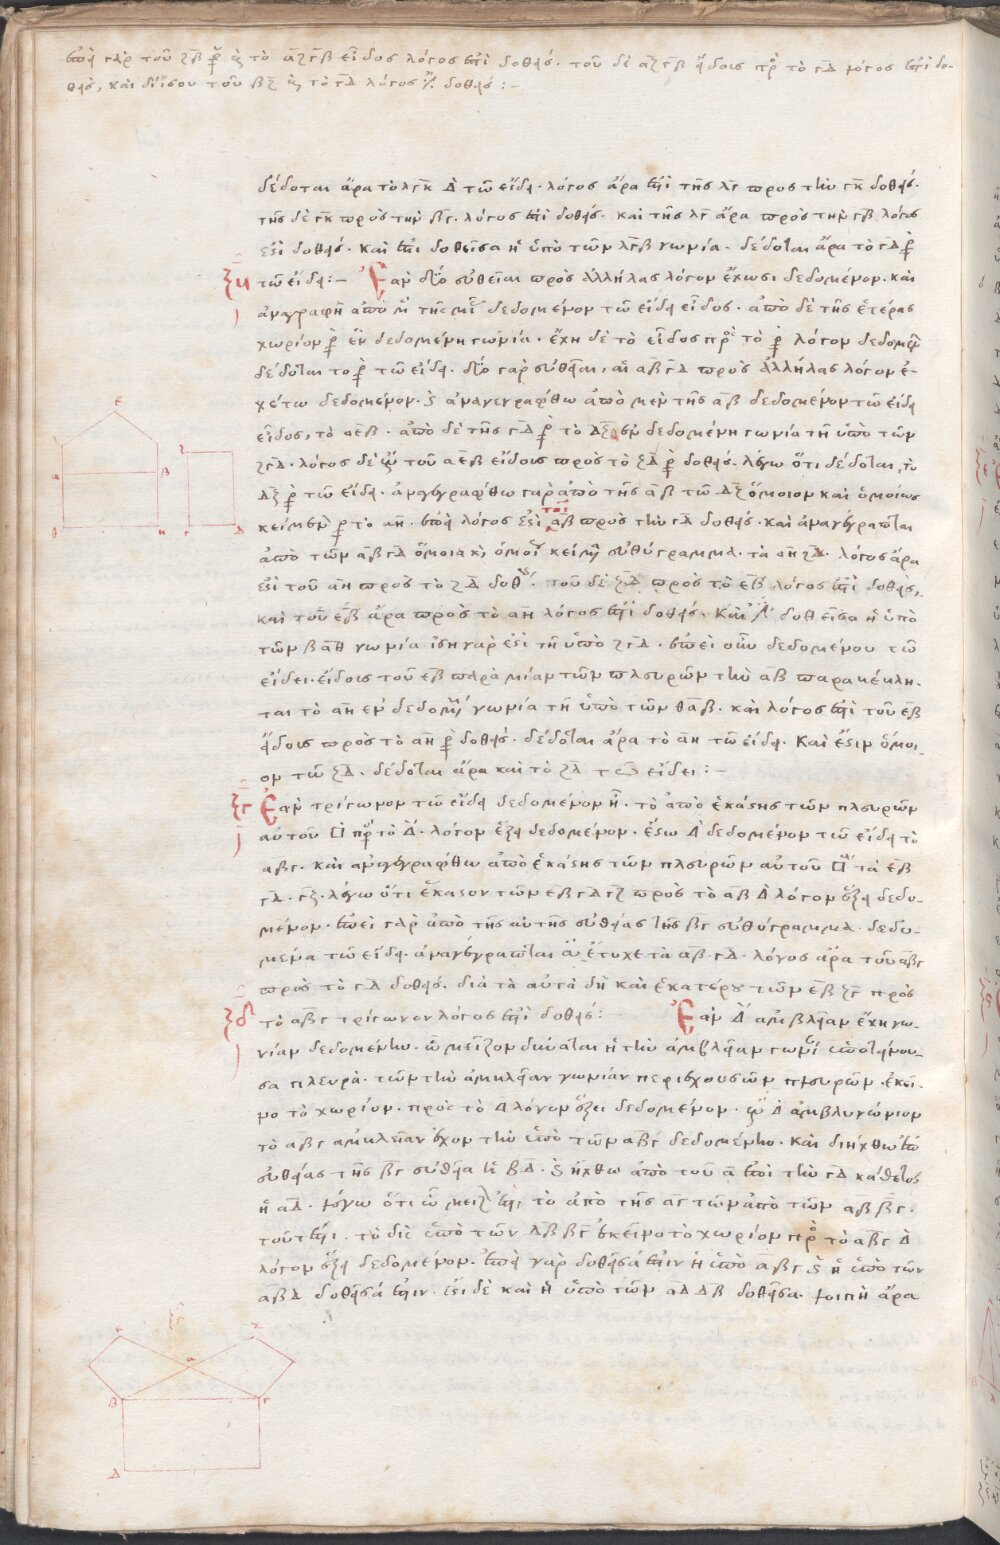 ἐπεὶ γὰρ τοῦ ζβ πρὸς τὸ αζγβ εἶδος λόγος ἐστὶ δοθείς· τοῦ δὲ αζγβ εἴδους πρὸς τὸ γδ λόγος ἐστὶ δο-
θείς, καὶ δι' ἴσου τοῦ βζ πρὸς τὸ γδ λόγος ἐστὶ δοθείς :-
δέδοται ἄρα τὸ λγκ Δ τῶ εἴδει· λόγος ἄρα ἐστὶ τῆς λγ προς τὴν γκ δοθείς·
τῆς δὲ γκ πρὸς τὴν βγ· λόγος ἐστὶ δοθείς· καὶ τῆς λγ ἄρα πρὸς τὴν γβ λόγος
ἐστὶ δοθείς· καὶ ἐστι δοθεῖσα ἡ ὑπὸ τῶν λγβ γωνία· δέδοται ἄρα τὸ γδ
ξη τῶ εἴδει :- Ἐὰν δύο εὐθεῖαι πρὸς ἀλλήλας λόγον ἔχωσι δεδομένον· καὶ
ἀναγραφῆ ἀπὸ μὲν τῆς μιᾶς δεδομένον τῶ εἴδει εἶδος· ἀπὸ δὲ τῆς ἑτέρας
χωρίον ἐν δεδομένη γωνία· ἔχη δὲ τὸ εἶδος πρὸς τὸ λόγον δεδομένον
δέδοται το τῶ εἴδει· δύο γὰρ εὐθεῖαι, αἱ αβ γδ πρὸς ἀλλήλας λόγον ἐ-
χέτω δεδομένον· καὶ ἀναγεγράφθω ἀπὸ μὲν τῆς αβ δεδομένον τῶ εἴδει
εἶδος, τὸ αεβ· ἀπὸ δὲ τῆς γδ τὸ δζ ἐν δεδομένη γωνία τῆ ὑπὸ τῶν
ζγδ· λόγος δὲ τοῦ αεβ εἴδους πρὸς τὸ ζδ δοθείς· λέγω ὅτι δέδοται, τὸ
δζ τῶ εἴδει· ἀναγεγράφθω γὰρ ἀπὸ τῆς αβ τῶ δζ ὅμοιον καὶ ὁμοίως
κείμενον τὸ αη· ἐπεὶ λόγος ἐστὶ τῆς αβ πρὸς τὴν γδ δοθείς· καὶ ἀναγέγραπται
ἀπὸ τῶν αβ γδ ὅμοια καὶ ὁμοίως κείμενα εὐθύγραμμα· τὰ αη ζδ· λόγος ἄρα
ἐστὶ τοῦ αη πρὸς τὸ ζδ δοθείς· τοῦ δὲ ζδ πρὸς τὸ εβ λόγος ἐστὶ δοθείς,
καὶ τοῦ εβ ἄρα πρὸς τὸ αη λόγος ἐστὶ δοθείς· Καὶ ἐστι δοθεῖσα ἡ ὑπὸ
τῶν βαθ γωνία ἴση γὰρ ἐστὶ τῆ ὑπὸ ζγδ· ἐπεὶ οὖν δεδομένου τῶ
εἴδει· εἴδους τοῦ εβ παρὰ μίαν τῶν πλευρῶν τὴν αβ παρακέκλη-
ται τὸ αη ἐν δεδομένη γωνία τῆ ὑπὸ τῶν θαβ· καὶ λόγος ἐστὶ τοῦ εβ
εἴδους πρὸς τὸ αη δοθείς· δέδοται ἄρα τὸ αη τῶ εἴδει· Καὶ ἔστιν ὅμοι-
ον τῶ ζδ· δέδοται ἄρα καὶ τὸ ζδ τῶ εἴδει :-
ξγ Ἐὰν τρίγωνον τῶ εἴδει δεδομένον ἦ· τὸ ἀπὸ ἑκάστης τῶν πλευρῶν
αὐτοῦ □ πρὸς τὸ Δ· λόγον ἕξει δεδομένον· ἔστω Δ δεδομένον τῶ εἴδει τὸ
αβγ· καὶ ἀναγεγράφθω ἀπὸ ἑκάστης τῶν πλευρῶν αὐτοῦ □ τὰ εβ
γδ· γζ· λέγω ὅτι ἕκαστον τῶν εβ γδ γζ πρὸς τὸ αβ Δ λόγον ἕξει δεδο-
μένον· ἐπεὶ γὰρ ἀπὸ τῆς αὐτῆς εὐθείας τῆς βγ εὐθύγραμμα· δεδο-
μένα τῶ εἴδει· ἀναγέγραπται ἃ ἔτυχε τὰ αβ· γδ· λόγος ἄρα τοῦ αβγ
πρὸς τὸ γδ δοθείς· διὰ τὰ αὐτὰ δὴ καὶ ἑκατέρου τῶν εβ ζγ πρὸς
ξδ τὸ αβγ τρίγωνον λόγος ἐστὶ δοθείς : Ἐὰν Δ ἀμβλεῖαν ἔχη γω-
νίαν δεδομένην· ὧ μεῖζον δύναται ἡ τὴν ἀμβλεῖαν γωνίαν ὑποτείνου-
σα πλευρὰ· τῶν τὴν ἀμβλεῖαν γωνίαν περιεχουσῶν πλευρῶν· ἐκεῖ-
νο τὸ χωρίον· πρὸς τὸ Δ λόγον ἕξει δεδομένον· ἔστω Δ ἀμβλυγώνιον
τὸ αβγ ἀμβλεῖαν ἔχον τὴν ὑπὸ τῶν αβγ δεδομένην· καὶ διήχθω ἐπ'
εὐθείας τῆς βγ εὐθεῖα ἡ βδ· καὶ ἤχθω ἀπὸ τοῦ α ἐπὶ τὴν γδ κάθετος
ἡ αδ· λέγω ὅτι ὧ μεῖζόν ἐστι τὸ ἀπὸ τῆς αγ τῶν ἀπὸ τῶν αβ βγ·
τοῦτ' ἐστι· τὸ δὶς ὑπὸ τῶν δβ βγ ἐκεῖνο τὸ χωρίον πρὸς τὸ αβγ Δ
λόγον ἕξει δεδομένον· ἐπεὶ γὰρ δοθεῖσά ἐστιν ἡ ὑπὸ αβγ καὶ ἡ ὑπὸ τῶν
αβδ δοθεῖσά ἐστιν· ἔστι δὲ καὶ ἡ ὑπὸ τῶν αδ δβ δοθεῖσα· λοιπὴ ἄρα